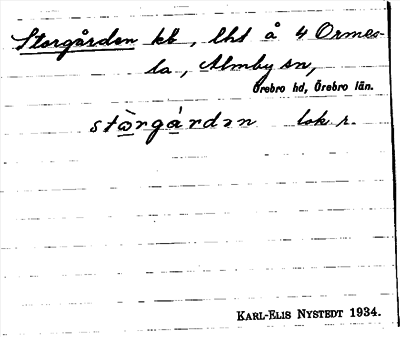 Storgården kb, lht å 4 Ormes-
ta, Almby sn,
Örebro hd, Örebro län.
stòrgá̱rdən lok r.
KARL-ELIS NYSTEDT 1934.